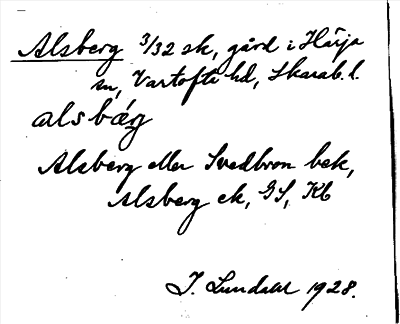 Alsberg 3/32 sk, gård i Härja
sn, Vartofta hd, Skarab. l.
alsbærg
Alsberg eller Svedbron bek,
Alsberg ek, GS, Kb
J. Lundahl 1928.